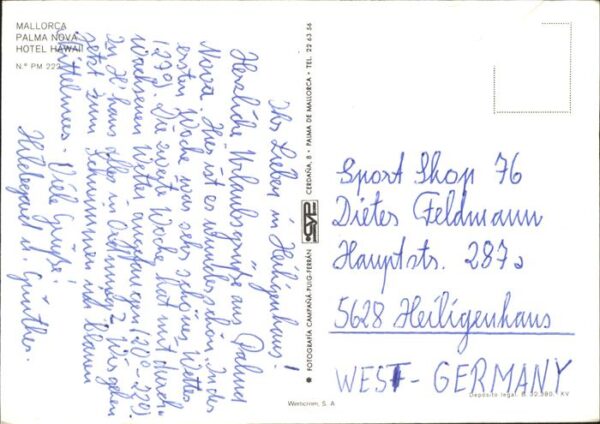 MALLORCA
PALMA NOVA
HOTEL HAWAII
N.° PM 222
Ihr Lieben in Heiligenhaus!
Herzliche Urlaubsgrüße aus Palma
Nova. Hier ist es wunderschön. In der
ersten Woche war sehr schönes Wetter
(27°). Die zweite Woche hat mit durch-
wachsenen Wetter angefangen (20°-22°).
In H'haus alles in Ordnung? Wir gehen
jetzt zum Schwimmen ins blauen
Mittelmeer. Viele Grüße!
Hildegard u. Günther.
FOTOGRAFIA CAMPAÑÁ-PUIG-FERRÁN
CERDAÑA, 8 • PALMA DE MALLORCA • TEL. 22 63 56
Sport Shop 76
Dieter Feldmann
Hauptstr. 287a
5628 Heiligenhaus
WEST-GERMANY
Depósito legal. B. 32.980. XV